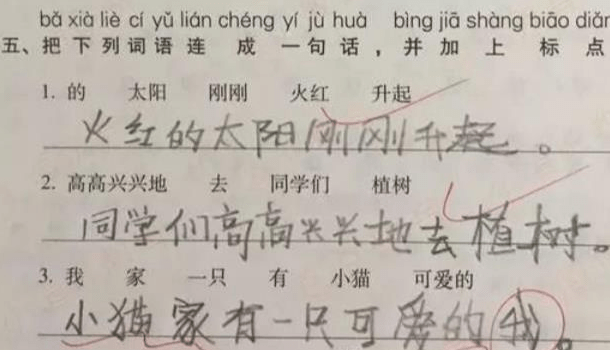 bǎ xià liè cí yǔ lián chéng yí jù huà bìng jiā shàng biāo diǎn
五、把下列词语连成一句话，并加上标点
1. 的 太阳 刚刚 火红 升起
火红的太阳刚刚升起。
2. 高高兴兴地 去 同学们 植树
同学们高高兴兴地去植树。
3. 我 家 一只 有 小猫 可爱的
小猫家有一只可爱的我。